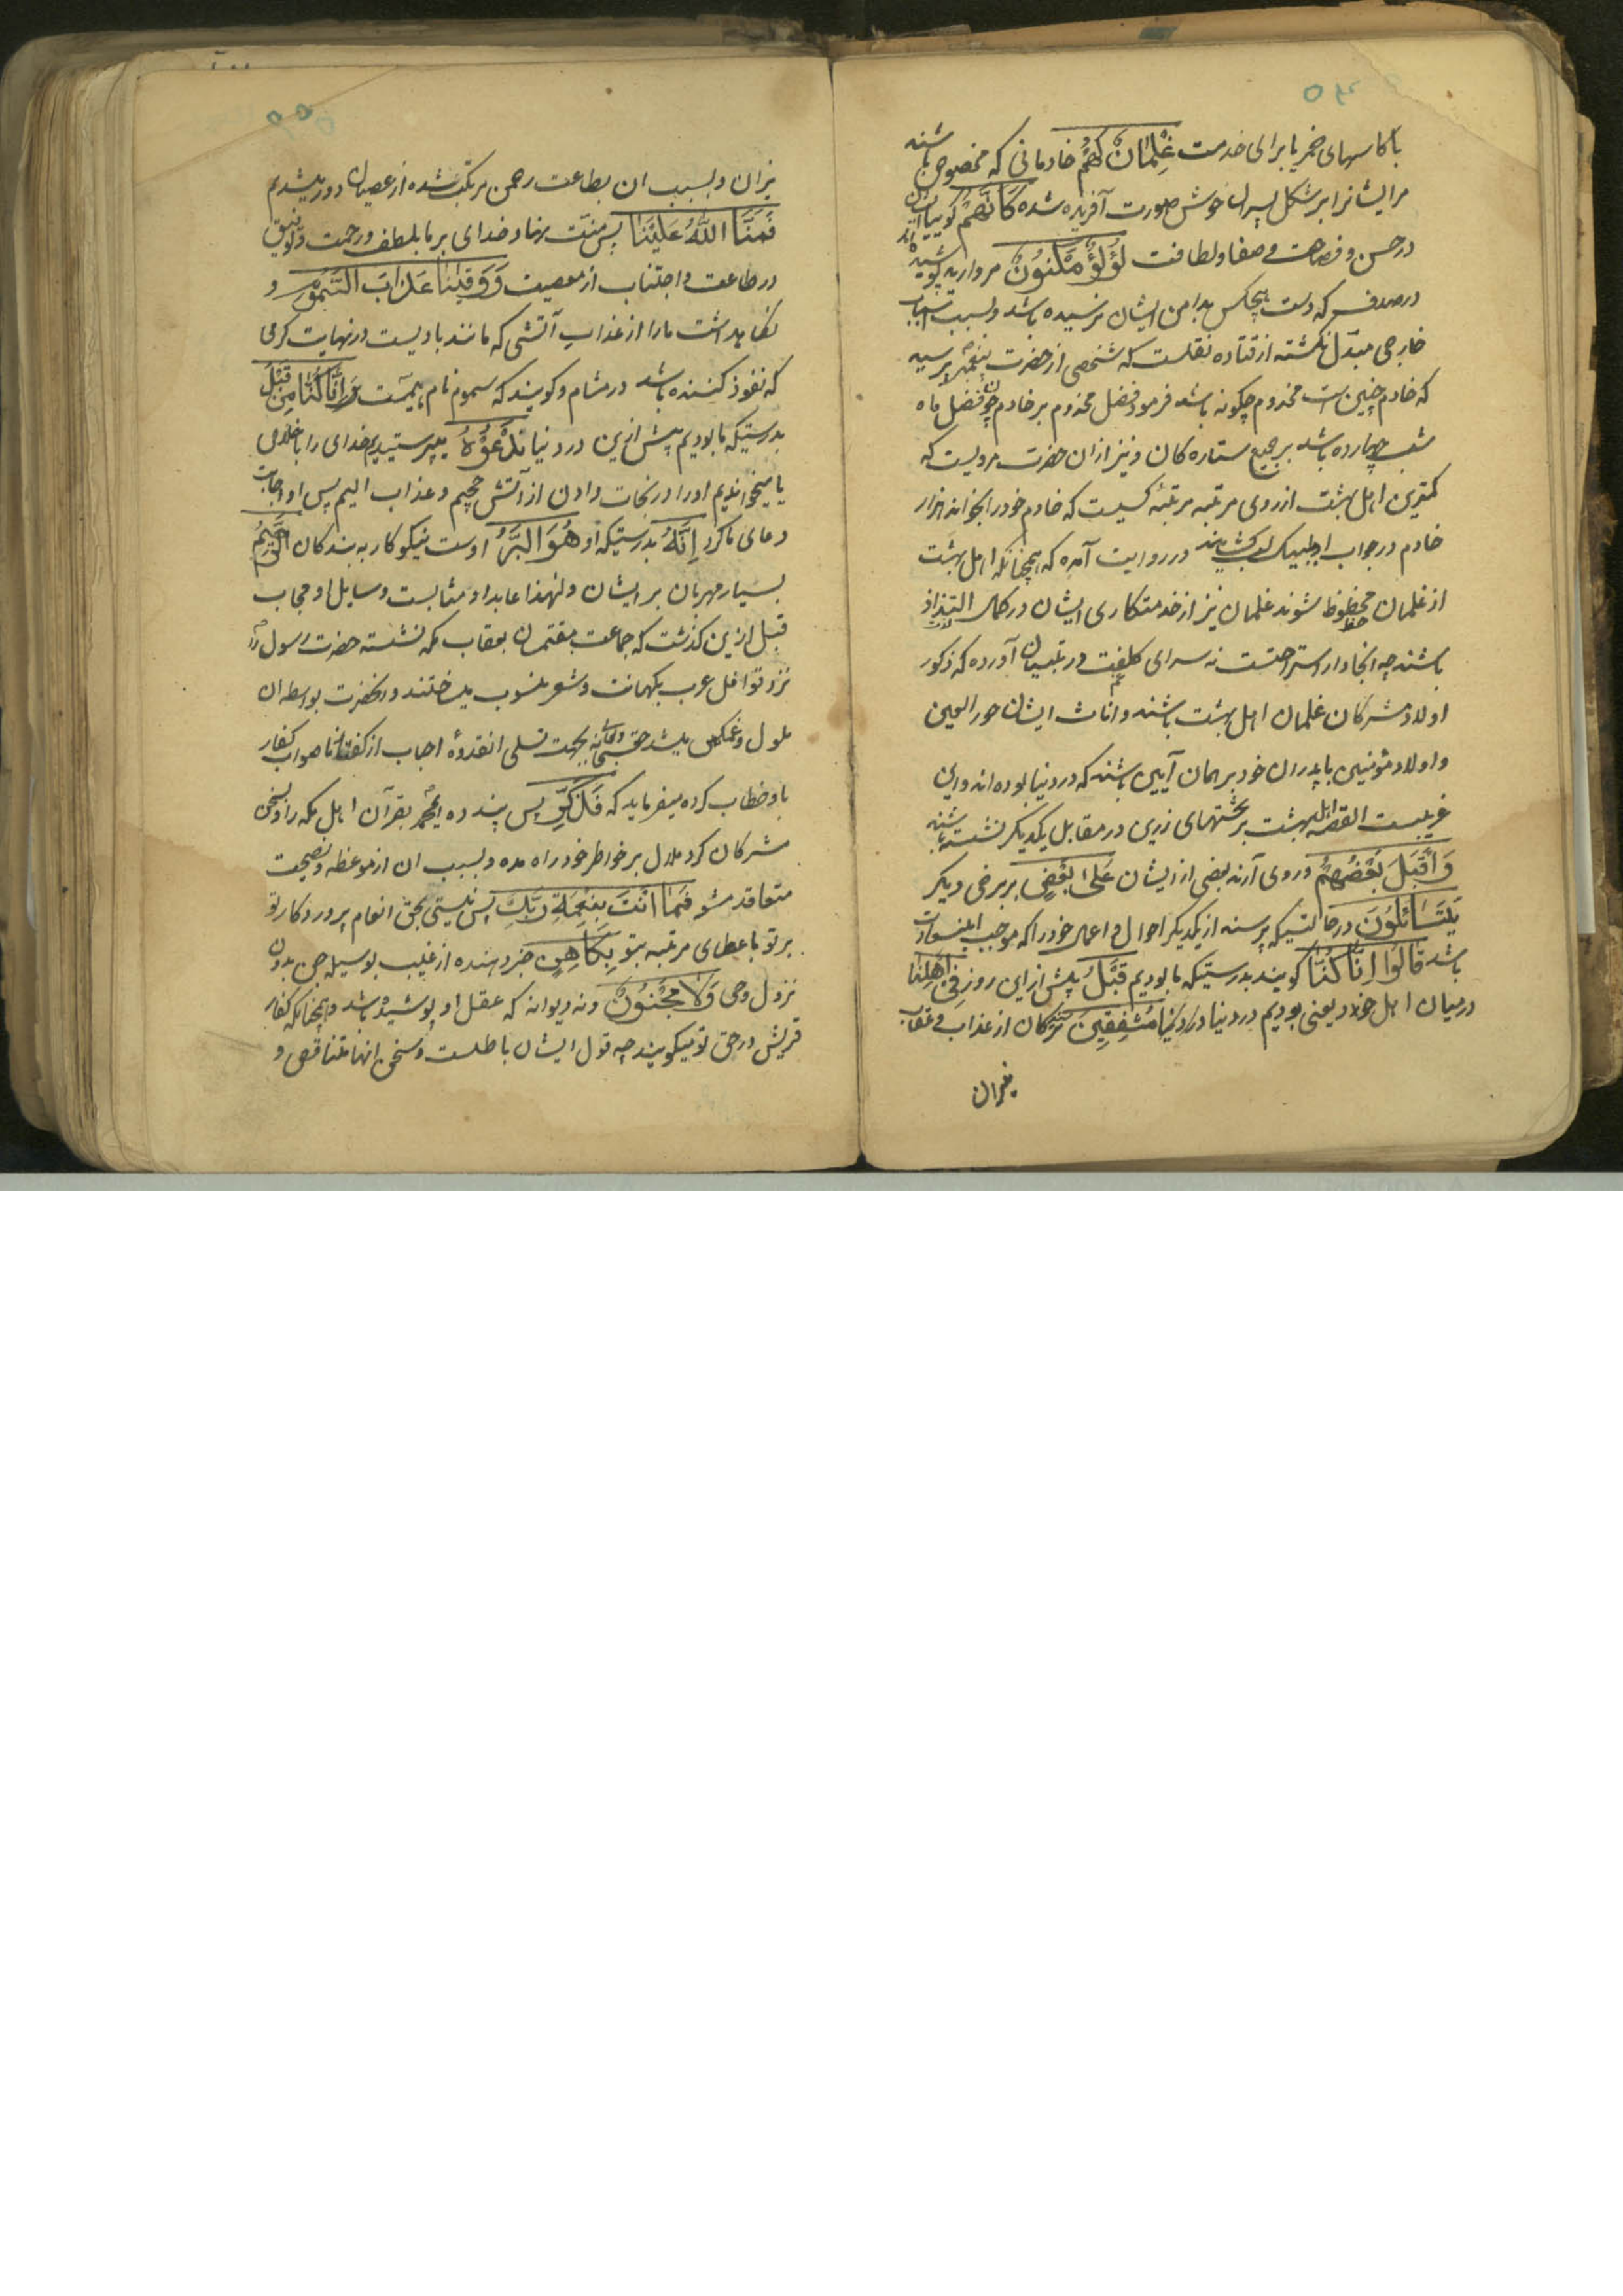 با کاسهای خمر یا برای خدمت غِلْمَانٌ لَهُمْ خادمانی که مخصوص باشند
مرایشانرا بر شکل پسران خوش صورت آفریده شده كَاَنَّهُمْ کوییا ایشان
در حسن و صفا و لطافت لُؤْلُؤٌ مَكْنُونٌ مروارید پوشیده اند
در صدف که دست هیچکس بدامن ایشان نرسیده باشد و بسبب اسباب
خارجی مبتدل نکشته از قتاده نقلست که شخصی از حضرت پیغمبر پرسید
که خادم چنین است مخدوم چکونه باشد فرمود فضل مخدوم بر خادم چون فضل ماه
شب چهارده باشد بر جمیع ستاره کان و نیز از ان حضرت مرویست که
کمترین اهل بهشت از روی مرتبه مرتبهٔ کسیست که خادم خود را بخواند هزار
خادم در جواب او لبیک لب کشایند در روایت آمده که همچنانکه اهل بهشت
از غلمان محظوظ شوند غلمان نیز از خدمتکاری ایشان در کمال التذاذ
باشند چه انجا دار استراحتست نه سرای کلفت در تبیان آورده که ذکور
اولاد مشرکان غلمان اهل بهشت باشند و اناث ایشان حور العین
و اولاد مؤمنین با پدران خود بر همان آیین باشند که در دنیا بوده اند و این
غریبست القصه اهل بهشت بر تختهای زرین در مقابل یکدیکر نشسته باشند
وَاَقْبَلَ بَعْضُهُمْ و روی آرند بعضی از ایشان عَلٰى بَعْضٍ بر برخی دیکر
يَتَسَائَلُونَ در حالتیکه پرسند از یکدیکر احوال و اعمال خود را که موجب این سعادت
باشد قَالُوا اِنَّا كُنَّا کویند بدرستیکه ما بودیم قَبْلُ پیش از این روز فِى اَهْلِنَا
در میان اهل خود یعنی بودیم در دنیا مُشْفِقِينَ ترسندکان از عذاب و عقاب
نیران
نیران و بسبب ان بطاعت رحمن مرتکب شده از عصیان دور میشدیم
فَمَنَّ اللّٰهُ عَلَيْنَا پس منت نهاد خدای بر ما بلطف و رحمت و توفیق
در طاعت و اجتناب از معصیت وَوَقٰينَا عَذَابَ السَّمُومِ و
نکاهداشت ما را از عذاب آتشی که مانند بادیست در نهایت کرمی
که نفوذ کننده باشد در مشام و کویند که سموم نام جهنمست اِنَّا كُنَّا مِنْ قَبْلُ
بدرستیکه ما بودیم پیش ازین در دنیا نَدْعُوهُ میپرستیدیم خدای را باخلاص
یا میخواندیم او را در نجات دادن از آتش جحیم و عذاب الیم پس او اجابت
دعای ما کرد اِنَّهُ بدرستیکه او هُوَ الْبَرُّ اوست نیکوکار به بندکان الرَّحِيمُ
بسیار مهربان بر ایشان و لهذا عابد او مثابست و سایل او مجاب
قبل ازین کذشت که جماعت مقتسمان بعقاب مکه نشسته حضرت رسول را
نزد قوافل عرب بکهانت و شعر منسوب میساختند و انحضرت بواسطه ان
ملول و غمکین میشد حق سبحانه بجهت تسلی انقدوهٔ احباب از کفتار ناصواب کفار
باو خطاب کرده میفرماید که فَذَكِّرْ پس پند ده ای محمد بقرآن اهل مکه را و سخن
مشرکان کرد ملال بر خواطر خود راه مده و بسبب ان از موعظه و نصیحت
متقاعد مشو فَمَا اَنْتَ بِنِعْمَةِ رَبِّكَ پس نیستی بحق انعام پروردکار تو
بر تو باعطای مرتبه نبوت بِكَاهِنٍ خبر دهنده از غیب بوسیله جن بدون
نزول وحی وَلَا مَجْنُونٍ و نه دیوانه که عقل او پوشیده باشد و همچنانکه کفار
قریش در حق تو میکویند چه قول ایشان باطلست و سخن انها متناقض و